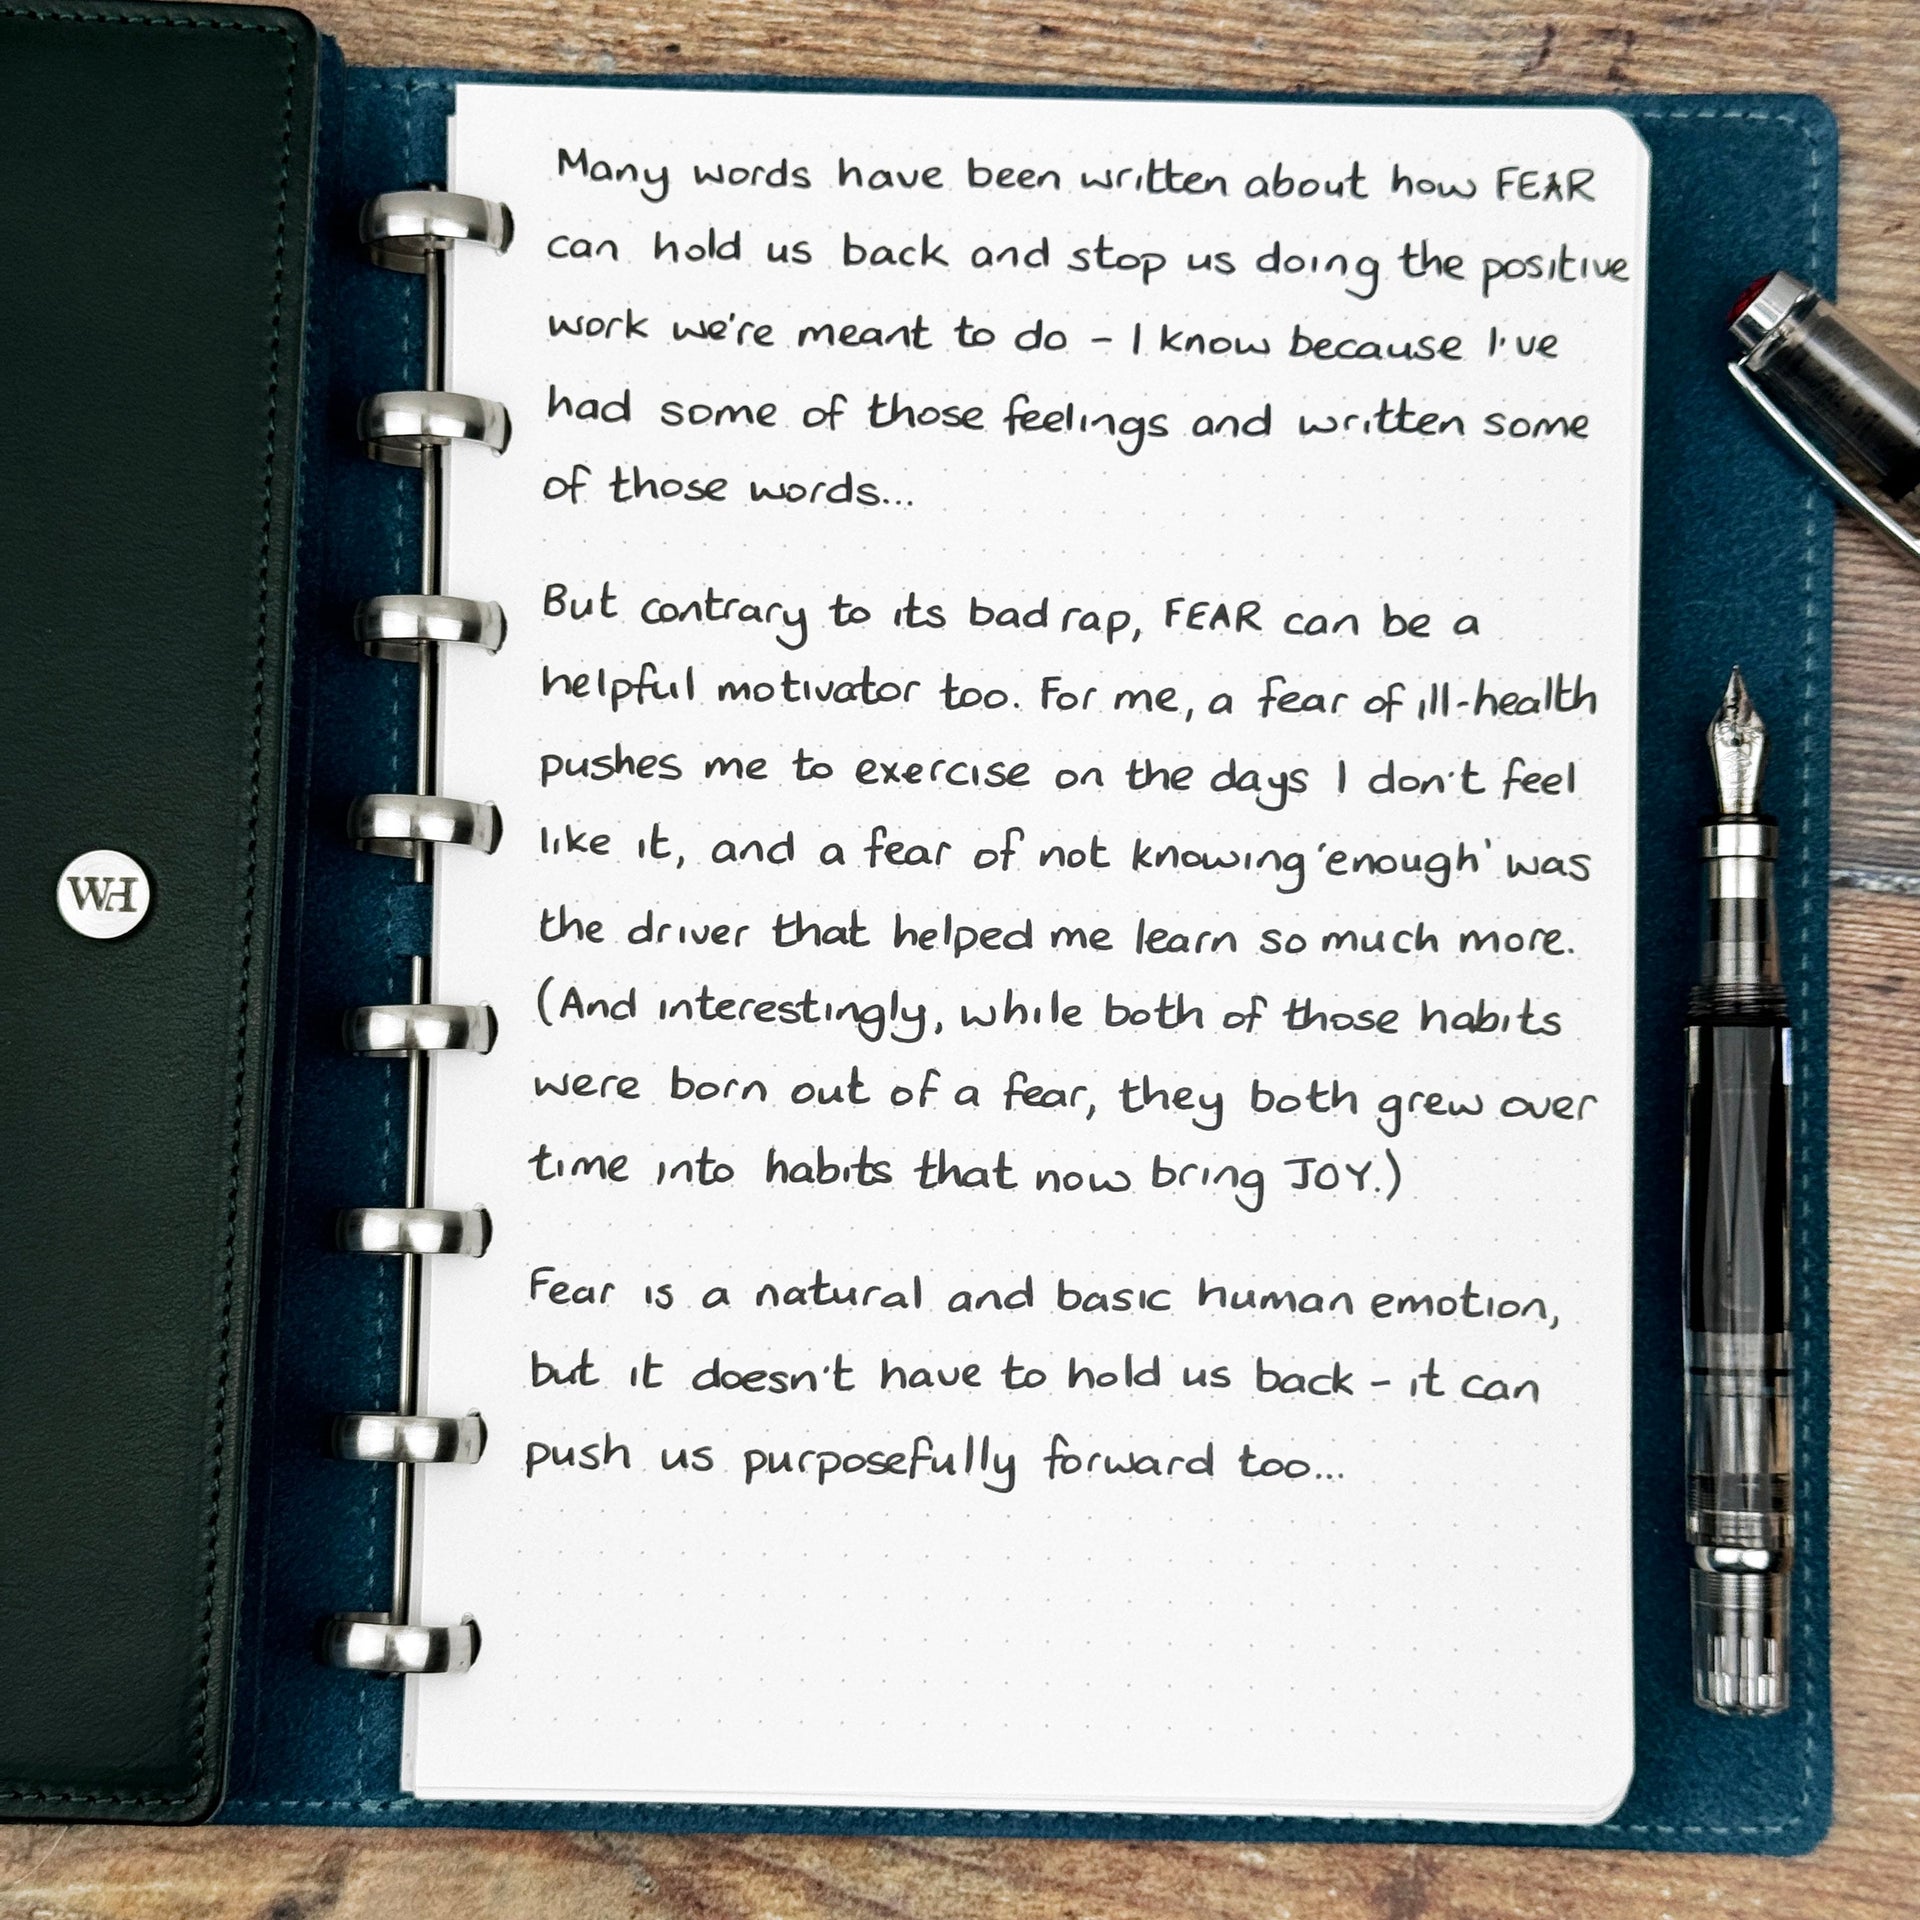 WH
Many words have been written about how FEAR
can hold us back and stop us doing the positive
work we're meant to do - I know because I've
had some of those feelings and written some
of those words...
But contrary to its bad rap, FEAR can be a
helpful motivator too. For me, a fear of ill-health
pushes me to exercise on the days I don't feel
like it, and a fear of not knowing 'enough' was
the driver that helped me learn so much more.
(And interestingly, while both of those habits
were born out of a fear, they both grew over
time into habits that now bring JOY.)
Fear is a natural and basic human emotion,
but it doesn't have to hold us back - it can
push us purposefully forward too...